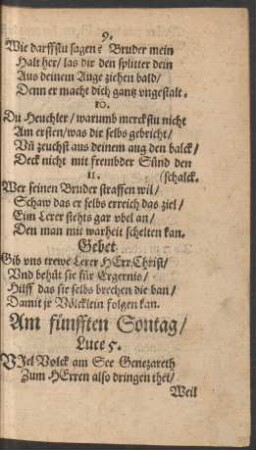 9.
Wie darffstu sagen: Bruder mein
Halt her/ las dir den splitter dein
Aus deinem Auge ziehen bald/
Denn er macht dich gantz vngestalt.
10.
Du Heuchler/ warumb merckstu nicht
Am ersten/ was dir selbs gebricht/
Vñ zeuchst aus deinem aug den balck/
Deck nicht mit frembder Sünd den
11. (schalck.
Wer seinen Bruder straffen wil/
Schaw das er selbs erreich das ziel/
Eim Lerer stehts gar vbel an/
Den man mit warheit schelten kan.
Gebet
Gib vns trewe Lerer HErr Christ/
Vnd behüt sie für Ergernis/
Hilff das sie selbs brechen die ban/
Damit jr Völcklein folgen kan.
Am fünfften Sontag/
Luce 5.
VJel Volck am See Genezareth
Zum HErren also dringen thet/
Weil